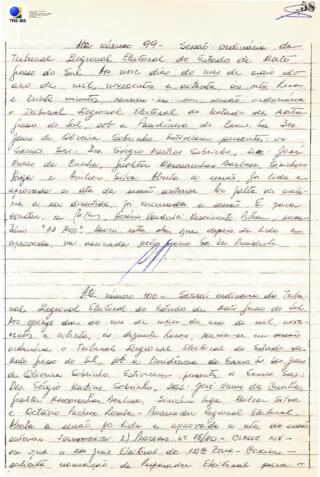 TRE-MS
58
Ata número 99 - Sessão ordinária do
Tribunal Regional Eleitoral do Estado de Mato
Grosso do Sul. Aos nove dias do mes de maio do
ano de mil, novecentos e oitenta, às oito horas
e trinta minutos, reuniu-se em sua sessão ordinária
o Tribunal Regional Eleitoral do Estado de Mato
Grosso do Sul, sob a Presidência do Exmo. Sr. Des.
Jesus de Oliveira Sobrinho. Estiveram presentes os
Exmos. Srs. Des. Sérgio Martins Sobrinho, drs. José
Nunes da Cunha, Jualter Mascarenhas Barbosa, Sunichiro
e Milton Silva. Aberta a sessão foi lida e
aprovada a ata da sessão anterior. Por falta de maté-
ria a ser discutida, foi encerrada a sessão. E para
constar, eu Nascimento Filho, secre-
tário "ad hoc", lavrei esta ata que depois de lida e
aprovada, vai assinada pelo Exmo. Sr. Des. Presidente
Ata número 100 - Sessão ordinária do Tribu-
nal Regional Eleitoral do Estado de Mato Grosso do Sul.
Aos quinze dias do mes de maio do ano de mil, nove-
centos e oitenta, às dezessete horas, reuniu-se em sessão
ordinária o Tribunal Regional Eleitoral do Estado de
Mato Grosso do Sul, sob a Presidência do Exmo. Sr. Des. Jesus
de Oliveira Sobrinho. Estiveram presentes os Exmos. Srs.
Des. Sérgio Martins Sobrinho, drs. José Nunes da Cunha,
Jualter Mascarenhas Barbosa, Sunichiro Milton Silva
e Octávio Pacheco - Procurador Regional Eleitoral.
Aberta a sessão foi lida e aprovada a ata da sessão
anterior. 1) Processo nº 16/80 - Classe XIV -
em que o MM Juiz Eleitoral da 12ª Zona - Coxim -
solicita nomeação de Preparador Eleitoral para o